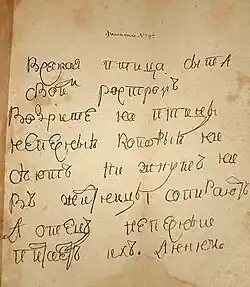 Всякая птица сыта
Свои
Возрите на птицы
небесныя которыи не
сѣютъ ни жнутъ не
въ житницы собираютъ
А отецъ небесныи
питаетъ ихъ.